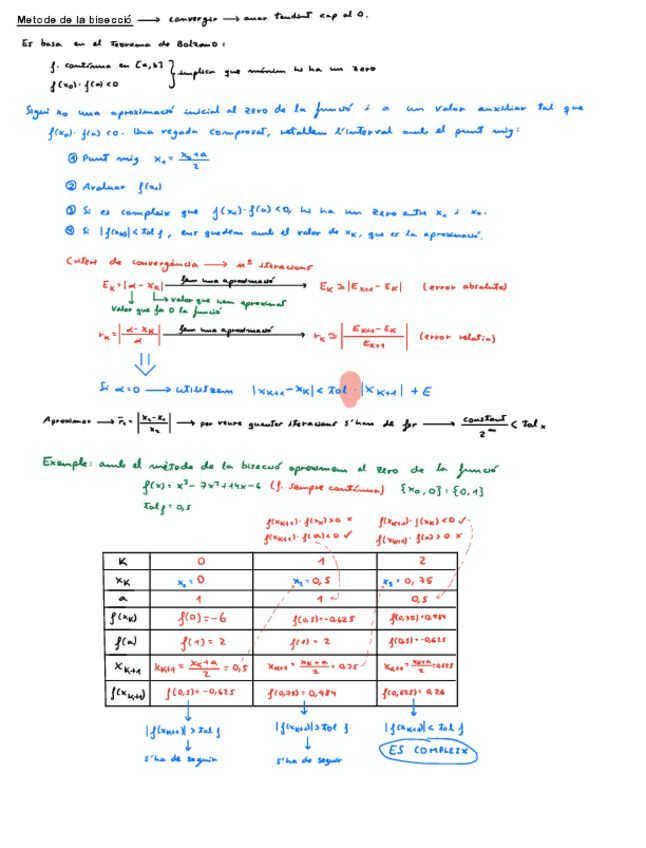 Metode de la bisecció → convergir → anar tendint cap al 0.
Es basa en el Teorema de Bolzano:
f. contínua en [a,b]
f(x₀)·f(a)<0 } implica que mínim hi ha un zero
Sigui x₀ una aproximació inicial al zero de la funció i a un valor auxiliar tal que
f(x₀)·f(a)<0. Una vegada comprovat, retallem l'interval amb el punt mig:
① Punt mig x₁ = (x₀+a)/2
② Avaluar f(x₁)
③ Si es compleix que f(x₁)·f(a)<0, hi ha un zero entre x₁ i x₀.
④ Si |f(xₖ)|<tol f, ens quedem amb el valor de xₖ, que es la aproximació.
Criteri de convergència → nº iteracions
Eₖ=|α-xₖ| fem una aproximació → Eₖ≃|Eₖ₊₁-Eₖ| (error absolut)
valor que hem aproximat
valor que fa 0 la funció
rₖ=|(α-xₖ)/α| fem una aproximació → rₖ≃|(Eₖ₊₁-Eₖ)/Eₖ₊₁| (error relatiu)
Si α=0 → utilitzem |xₖ₊₁-xₖ|<tol·|xₖ₊₁|+E
Aproximar → r̄₁=|(x₂-x₁)/x₂| → per veure quantes iteracions s'han de fer → constant/2ᵐ < tol x
Exemple: amb el mètode de la bisecció aproximem el zero de la funció
f(x)=x³-7x²+14x-6 (f. sempre contínua) {x₀,a}={0,1}
tol f=0,5
f(xₖ₊₁)·f(xₖ)>0 × f(xₖ₊₁)·f(xₖ)<0 ✓
f(xₖ₊₁)·f(a)<0 ✓ f(xₖ₊₁)·f(a)>0 ×
K 0 1 2
xₖ x₁=0 x₂=0,5 x₃=0,75
a 1 1 0,5
f(xₖ) f(0)=-6 f(0,5)=-0,625 f(0,75)=0,984
f(a) f(1)=2 f(1)=2 f(0,5)=-0,625
xₖ₊₁ xₖ₊₁=(xₖ+a)/2=0,5 xₖ₊₁=(xₖ+a)/2=0,75 xₖ₊₁=(xₖ+a)/2=0,625
f(xₖ₊₁) f(0,5)=-0,625 f(0,75)=0,984 f(0,625)=0,26
|f(xₖ₊₁)|>tol f |f(xₖ₊₁)|>tol f |f(xₖ₊₁)|<tol f
s'ha de seguir s'ha de seguir ES COMPLEIX